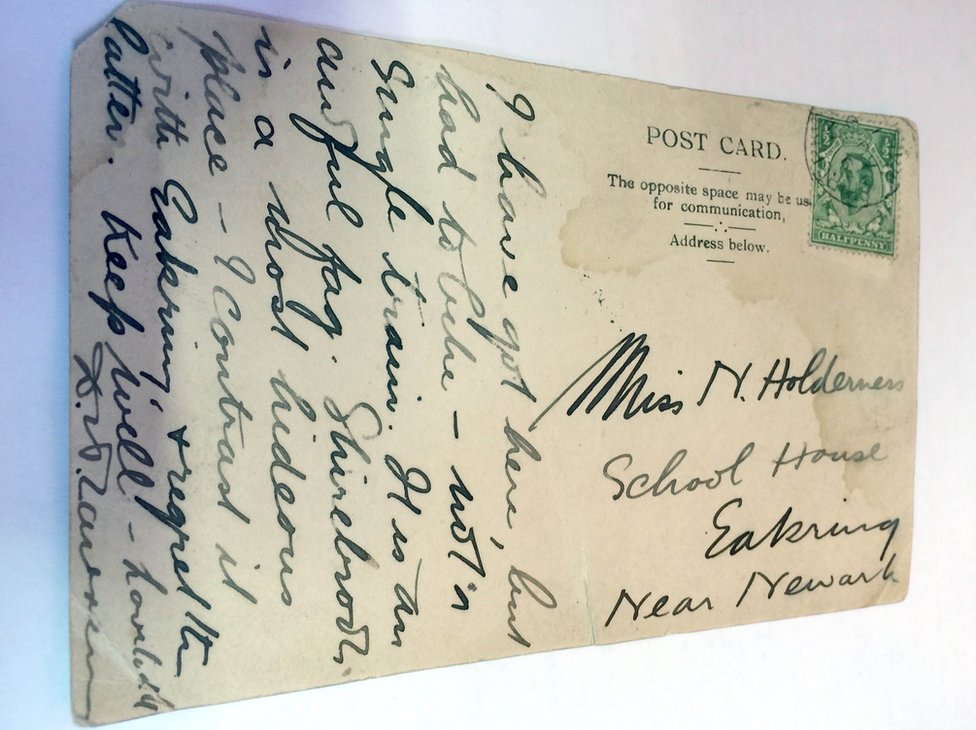 POST CARD.
The opposite space may be us
for communication,
Address below.
HALFPENNY
Miss N. Holderness
School House
Eakring
Near Newark
I have got here, but
had to bike – not a
Single train. It is an
awful fag. Shirebrook
is a most hideous
place – I Contrast it
with Eakring, & regret the
latter. Keep well –